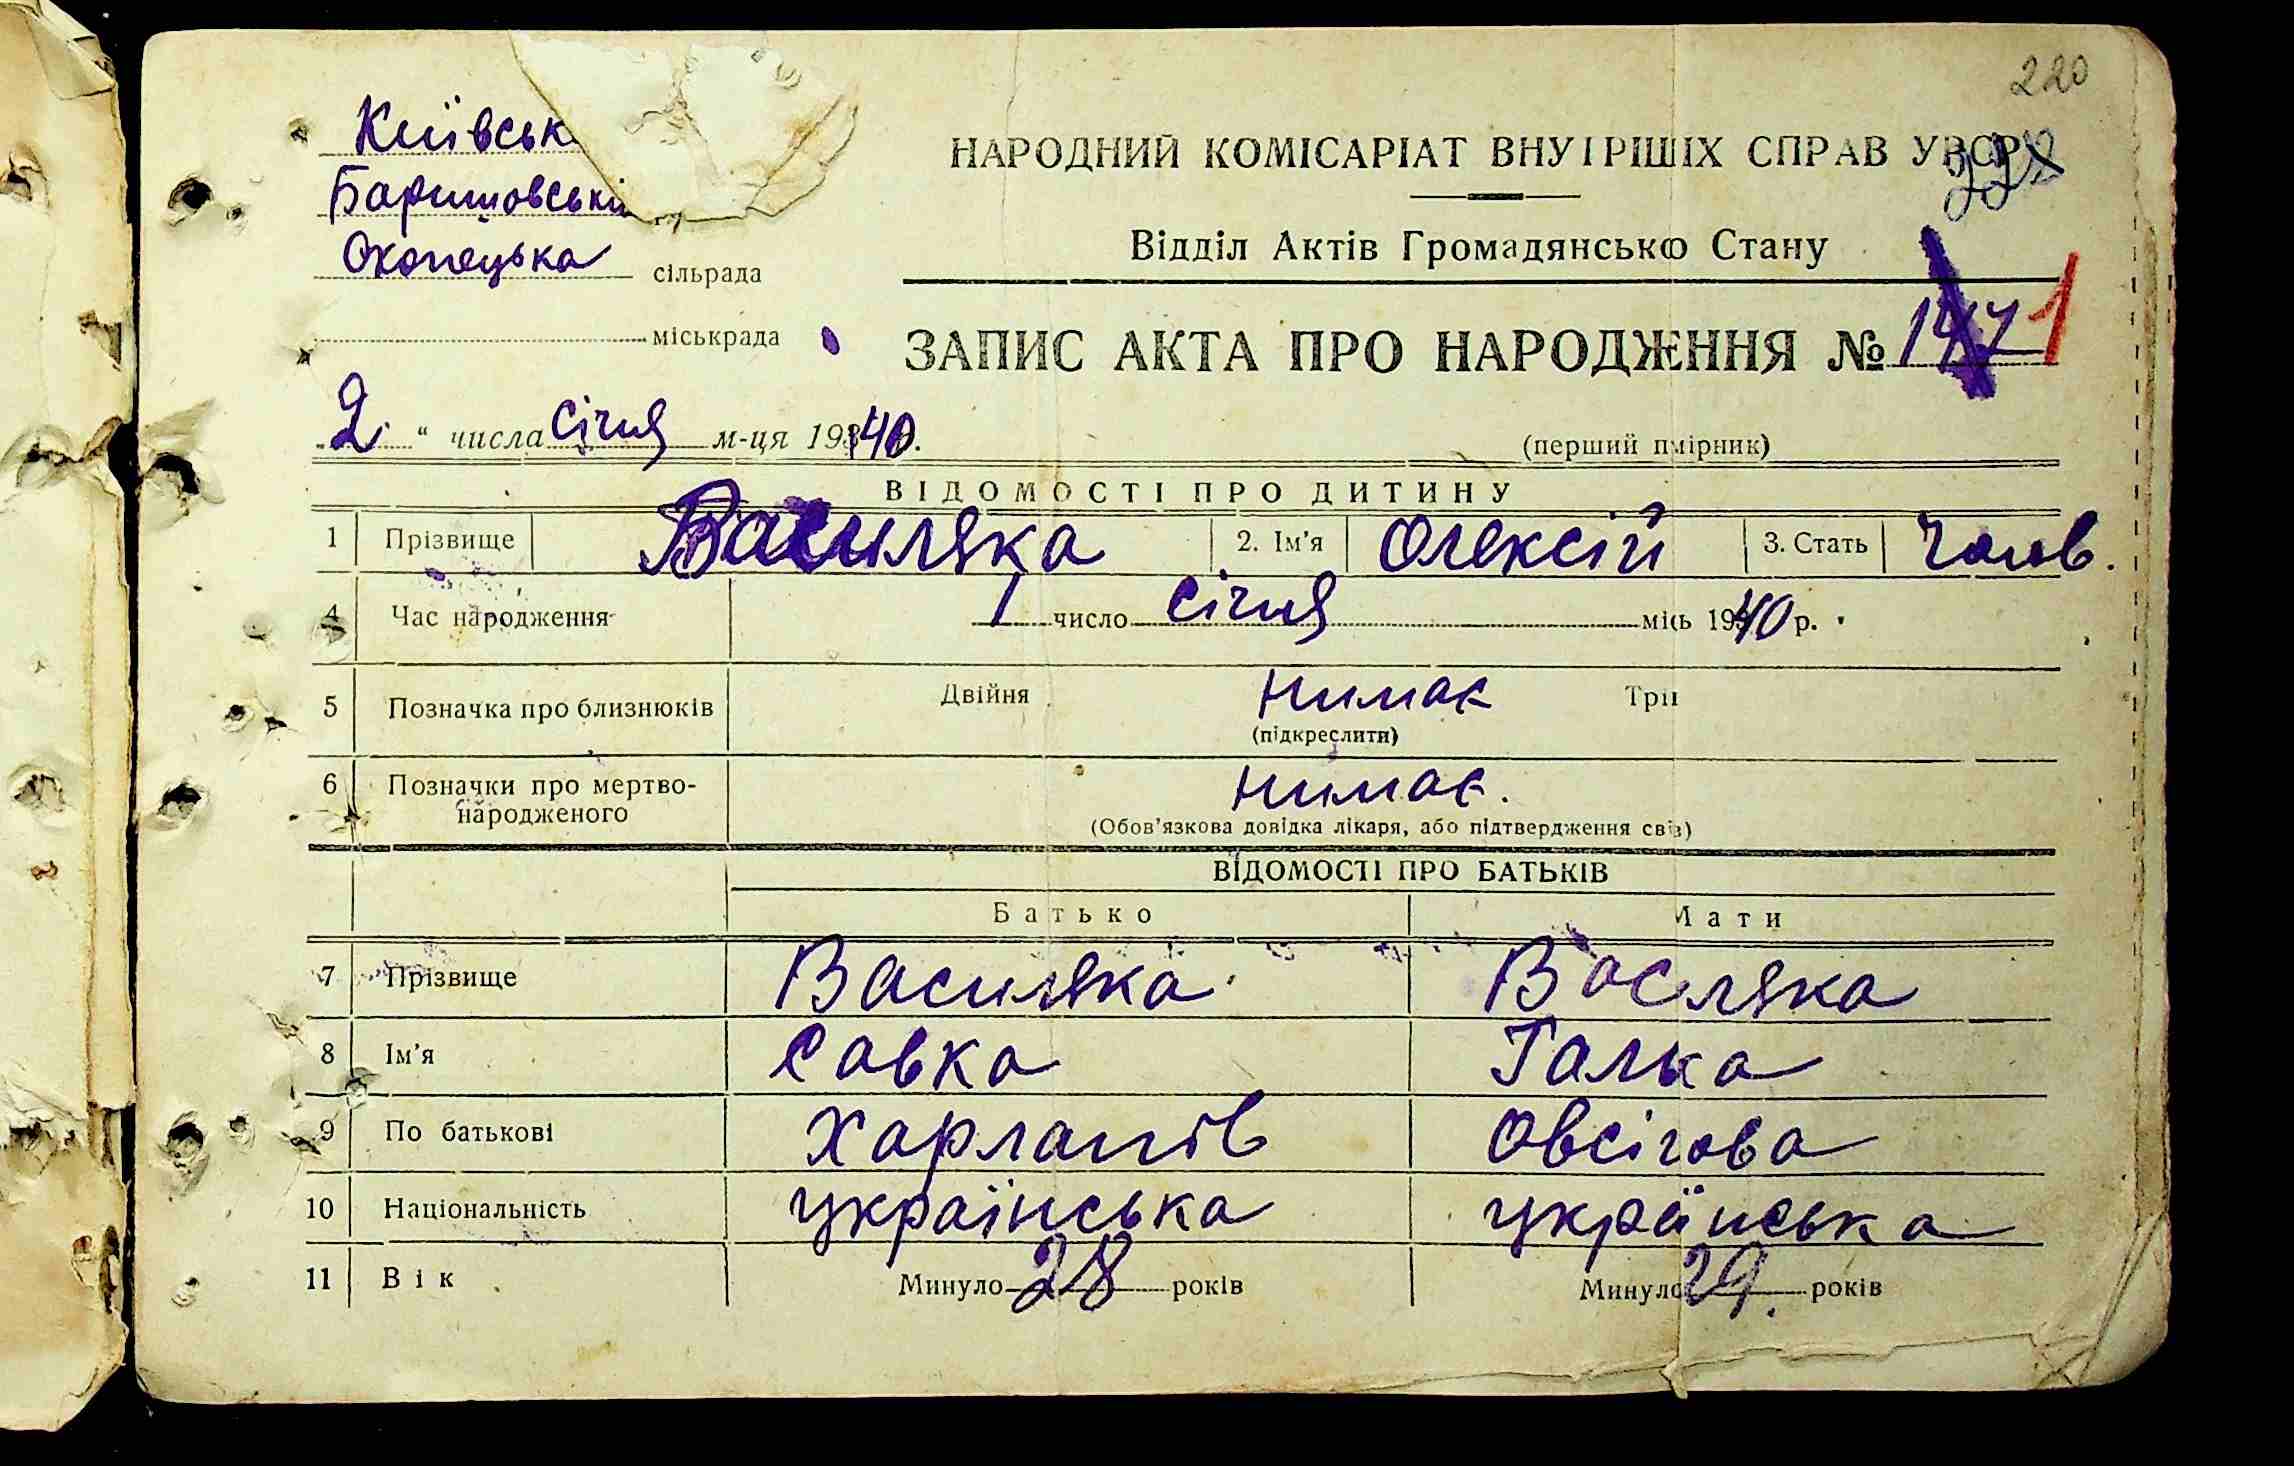 220
Київськ
Баришовські
Охопецька сільрада
міськрада
НАРОДНИЙ КОМІСАРІАТ ВНУТРІШІХ СПРАВ УРСР
Відділ Актів Громадянського Стану
ЗАПИС АКТА ПРО НАРОДЖЕННЯ № 1
„2“ числа січня м-ця 1940.
(перший пмірник)
ВІДОМОСТІ ПРО ДИТИНУ
1 Прізвище Василяка 2. Ім’я Олексій 3. Стать Чолов.
4 Час народження 1 число січня місь 1940 р.
5 Позначка про близнюків Двійня нимає Трії
(підкреслити)
6 Позначки про мертво-
народженого нимає.
(Обов’язкова довідка лікаря, або підтвердження свів)
ВІДОМОСТІ ПРО БАТЬКІВ
Батько Мати
7 Прізвище Василяка Васляка
8 Ім’я Савка Галька
9 По батькові Харлапів Овсігова
10 Національність українська українська
11 Вік Минуло 28 років Минуло 29. років